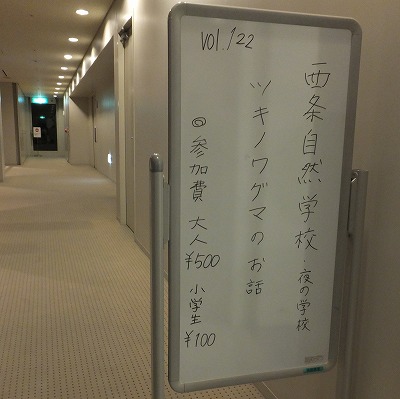 vol.122
西条自然学校・夜の学校
ツキノワグマのお話
◎参加費 大人 ¥500 小学生 ¥100